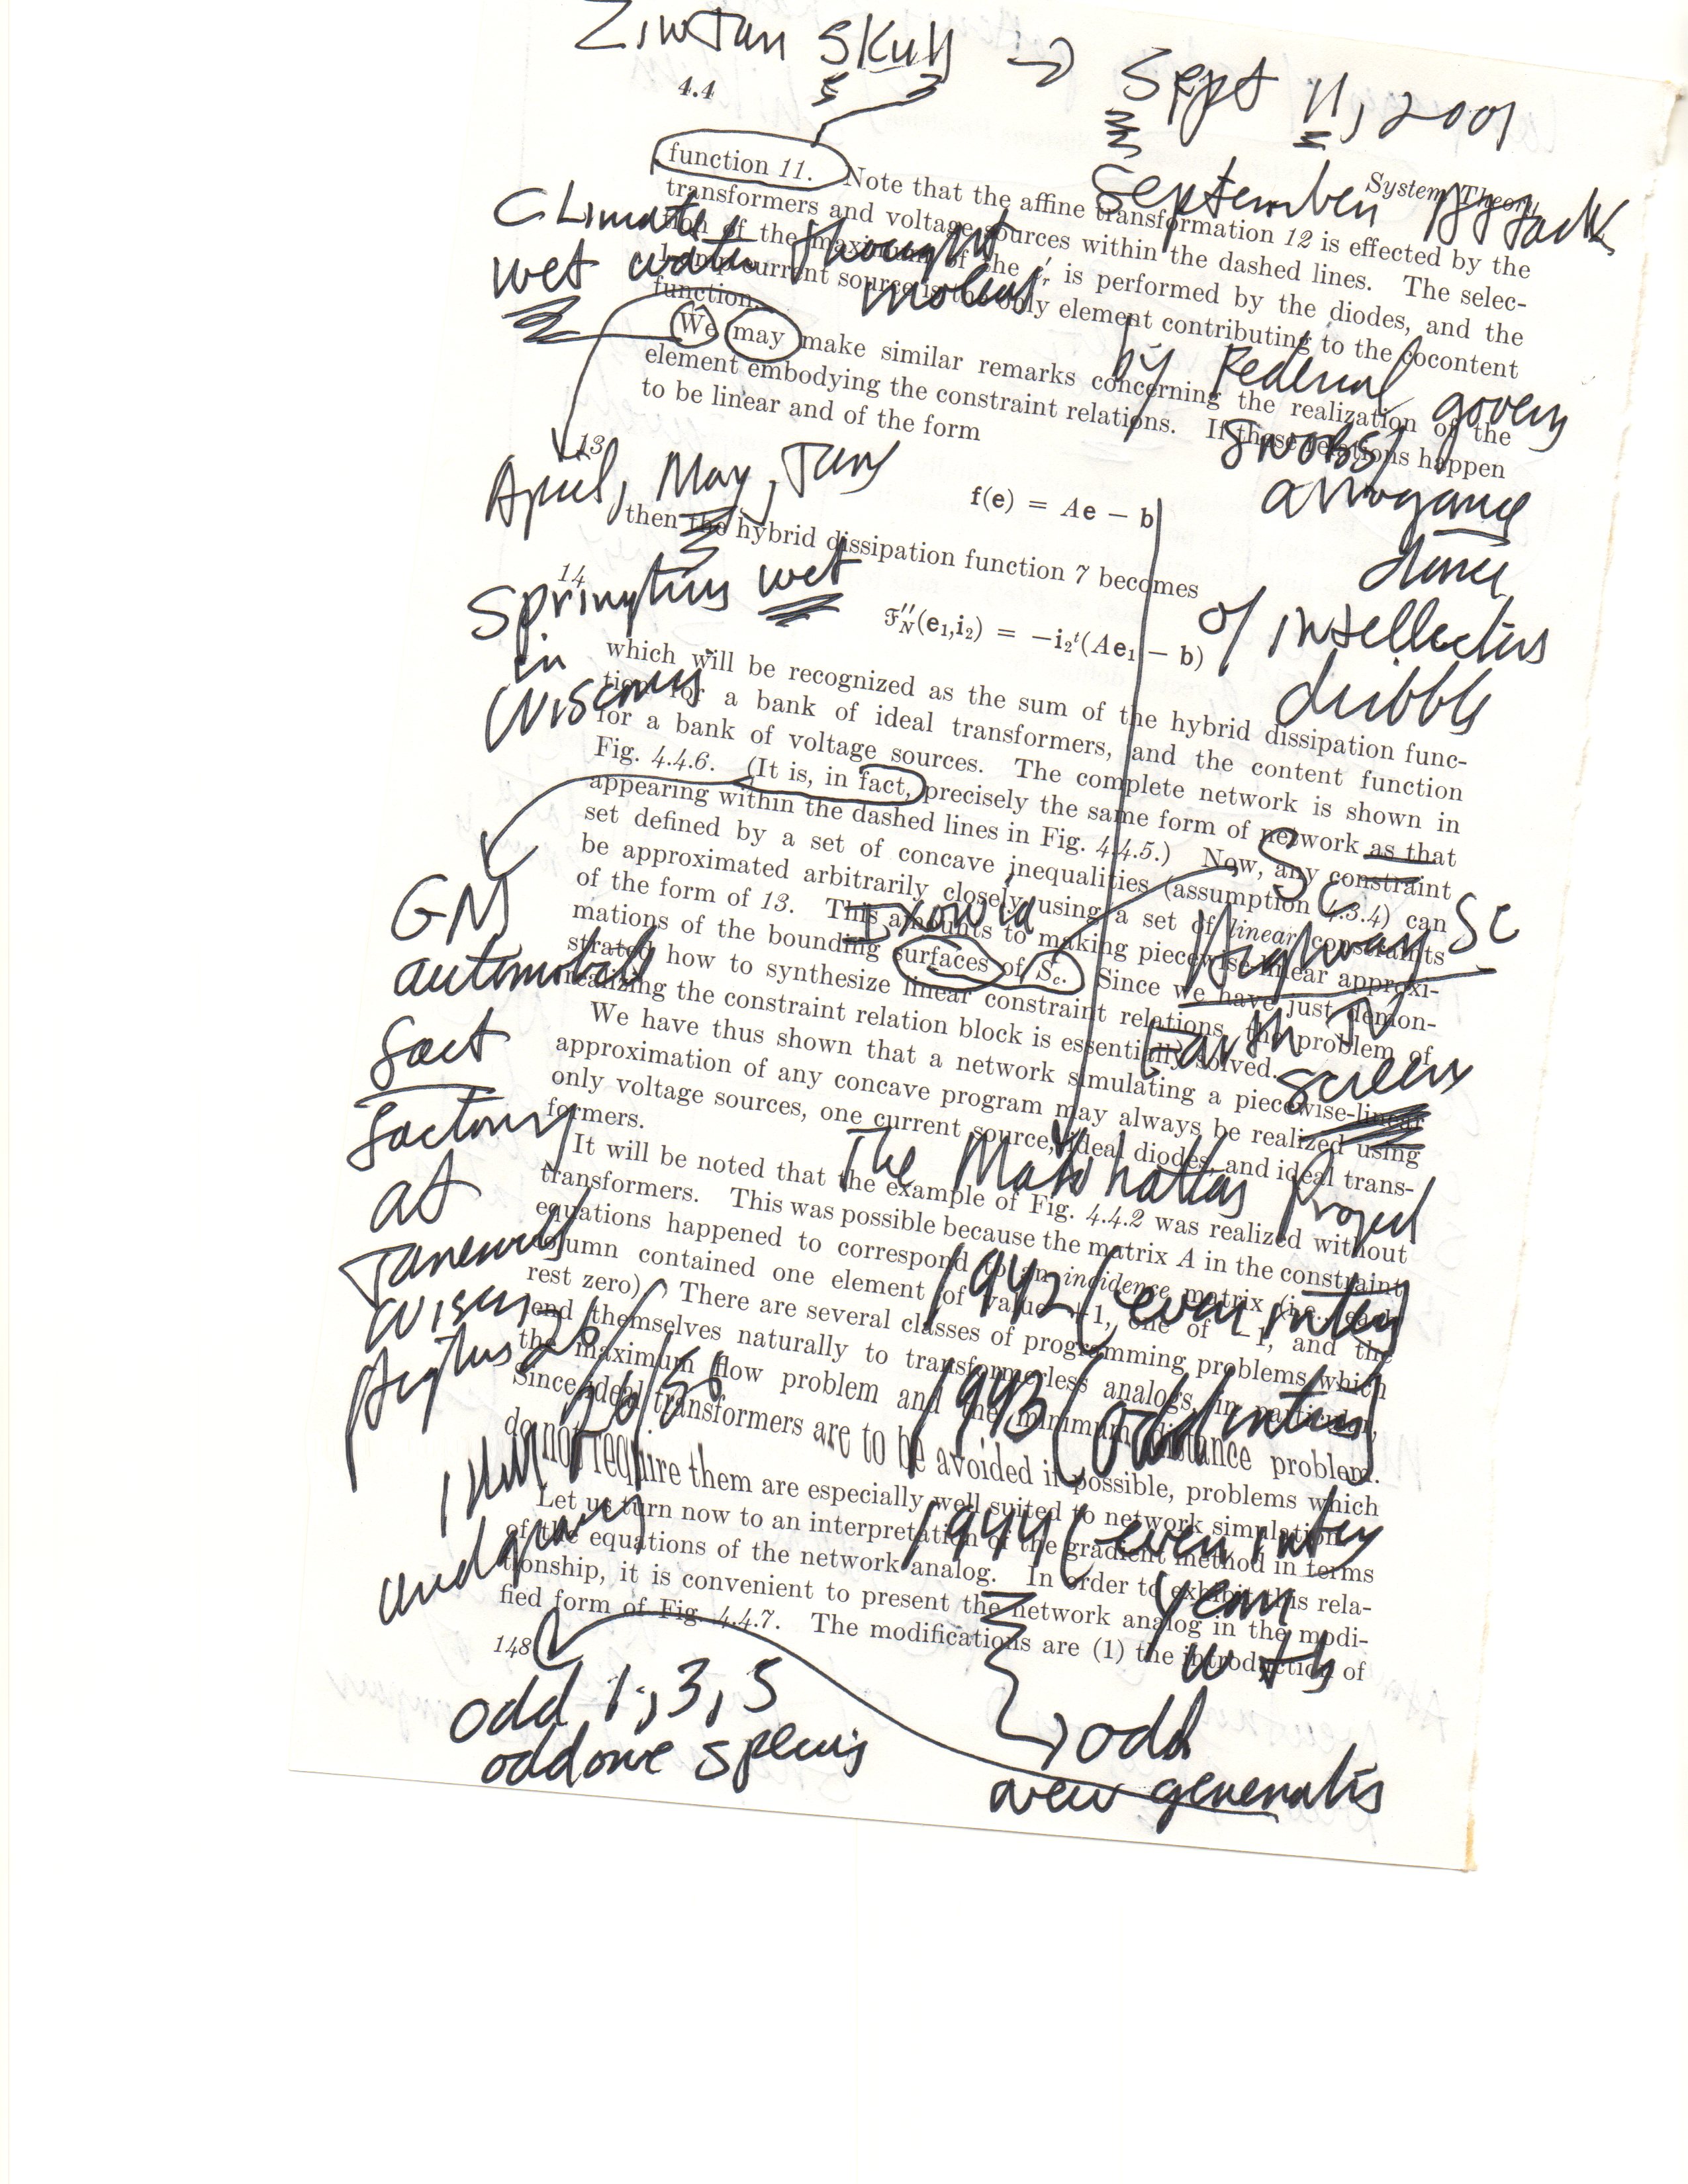 ZinJan Skull → Sept 11, 2001
4.4
September 11 attack
System Theory
function 11. Note that the affine transformation 12 is effected by the
transformers and voltage sources within the dashed lines. The selec-
Climate thought
tion of the maximum of the is performed by the diodes, and the
wet water molecul
current source is the only element contributing to the cocontent
function.
We may make similar remarks concerning the realization of the
by Federal govern
element embodying the constraint relations. If these relations happen
snobs
to be linear and of the form
arrogance
13
April, May, June
f(e) = Ae − b
dance
then the hybrid dissipation function 7 becomes
14
Springtime wet
of intellectus
ℱ″N(e₁,i₂) = −i₂ᵗ(Ae₁ − b)
in
dribble
which will be recognized as the sum of the hybrid dissipation func-
Wisconsin
tion for a bank of ideal transformers, and the content function
for a bank of voltage sources. The complete network is shown in
Fig. 4.4.6. (It is, in fact, precisely the same form of network as that
appearing within the dashed lines in Fig. 4.4.5.) Now, any constraint
Sc
set defined by a set of concave inequalities (assumption 4.3.4) can
GM
be approximated arbitrarily closely using a set of linear constraints
Highway SC
of the form of 13. This amounts to making piecewise-linear approxi-
automobile
mations of the bounding surfaces of Sc. Since we have just demon-
strated how to synthesize linear constraint relations, the problem of
Earth TV
realizing the constraint relation block is essentially solved.
fact
screen
We have thus shown that a network simulating a piecewise-linear
approximation of any concave program may always be realized using
factory
only voltage sources, one current source, ideal diodes, and ideal trans-
formers.
The Manhattan Project
at
It will be noted that the example of Fig. 4.4.2 was realized without
transformers. This was possible because the matrix A in the constraint
Janesville
equations happened to correspond to an incidence matrix (i.e., each
1942 (even integ
column contained one element of value +1, one of −1, and the
Wiscn
rest zero). There are several classes of programming problems which
26
lend themselves naturally to transformerless analogs, in particular,
1943 (odd integ
the maximum flow problem and the minimum distance problem.
26/56
Since ideal transformers are to be avoided if possible, problems which
do not require them are especially well suited to network simulation.
1944 (even integ
Let us turn now to an interpretation of the gradient method in terms
of the equations of the network analog. In order to exhibit this rela-
year
tionship, it is convenient to present the network analog in the modi-
fied form of Fig. 4.4.7. The modifications are (1) the introduction of
148
odd 1, 3, 5
odd
new